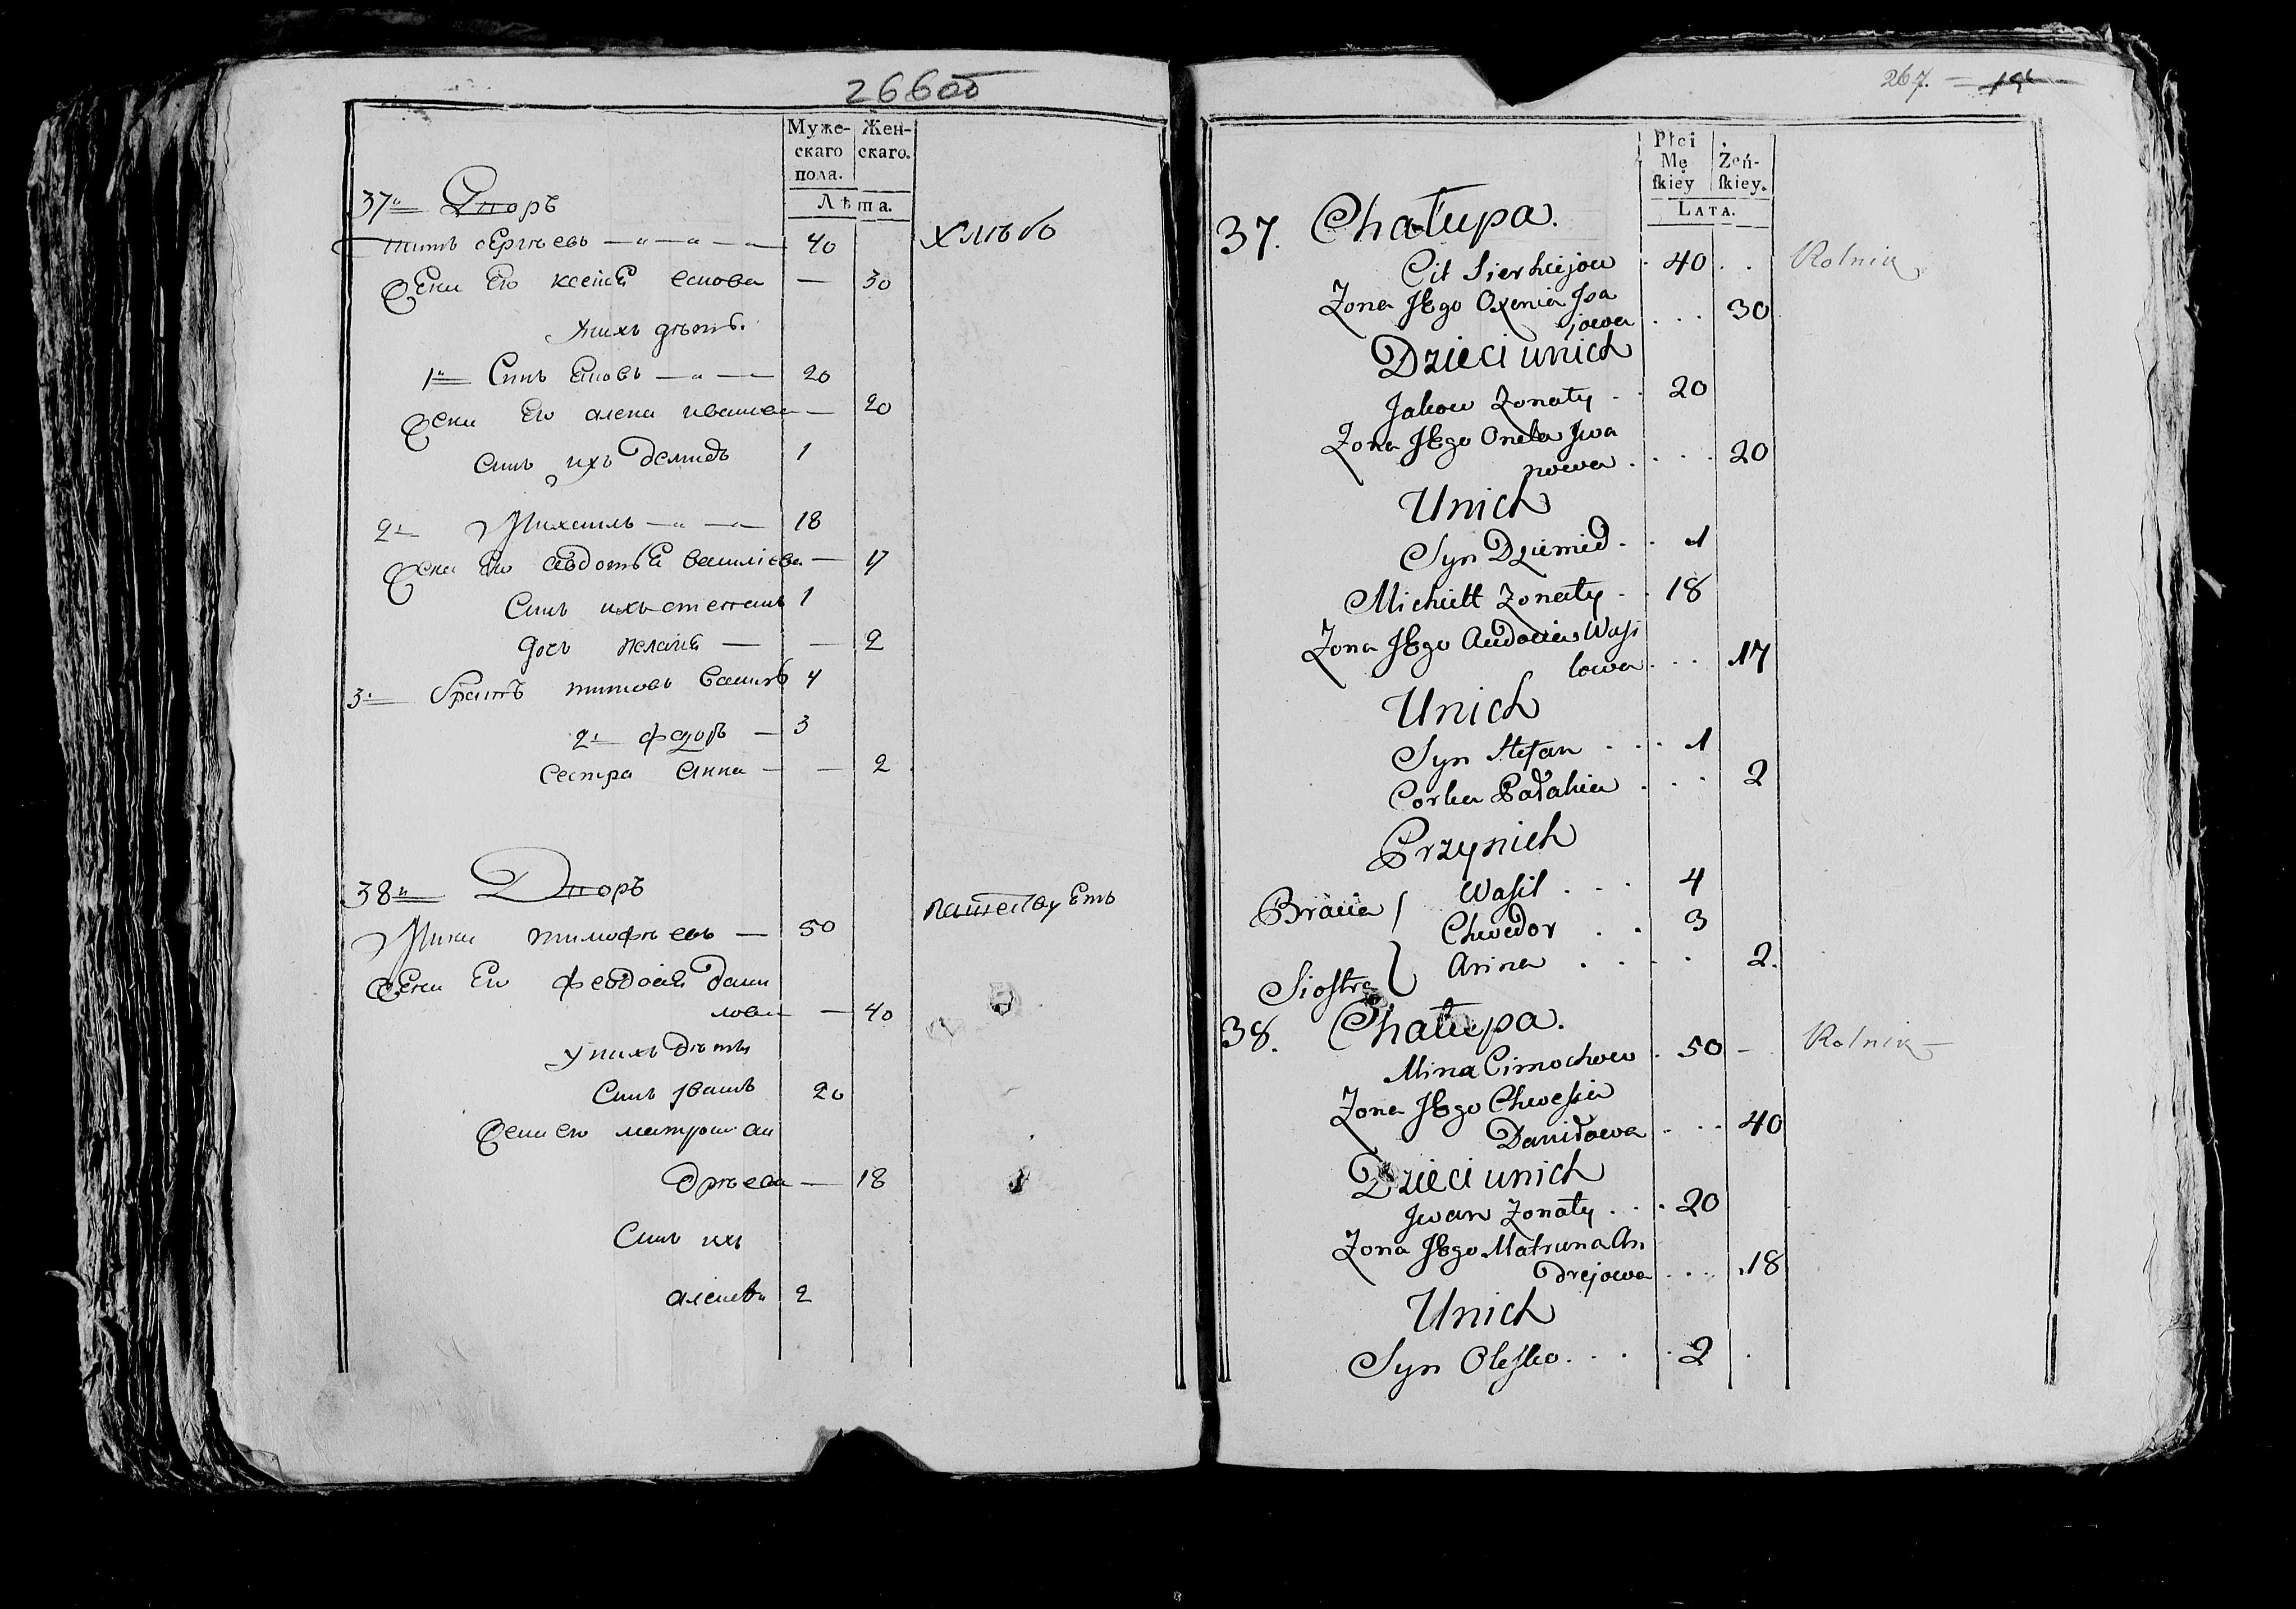 266об
Муже-
скаго
пола.
Жен-
скаго.
Лѣта.
37й Дворъ
титъ сергѣевъ — 40
хлѣбо
жена Его ксенiя — 30
У нихъ дѣти
1й Синъ яковъ — 20
жена Его алена иванова — 20
Синъ ихъ демидъ 1
2й Михаилъ — 18
жена Его авдотья василiева — 17
Синъ ихъ степанъ 1
дочъ пелагiя — 2
3й братъ титовъ василь 4
2й федоръ — 3
сестра анна — 2
38й Дворъ
пашествуетъ
Мина тимофѣевъ — 50
жена Его феодосiя дани
лова — 40
у нихъ дѣти
Синъ иванъ 20
жена его матрона ан
дрѣева — 18
Синъ ихъ
алексѣй 2
267. — 19
Płci
Mę
ſkiey
Żeń-
ſkiey.
LATA.
37. Chałupa.
Cit Sierhiejow . 40 . . Rolnik
Zona JEgo Oxenia Jsa
jowa . . . 30
Dzieci unich
Jakow Zonaty . . 20
Zona JEgo Onela Jwa
nowa . . . . 20
Unich
Syn Dziemid . . 1
Michałł Zonaty . . 18
Zona JEgo Audocia Wasi
lowa . . . 17
Unich
Syn Stefan . . . 1
Corka Pałahia . . . 2
Przynich
Bracia Wasil . . . 4
Chwedor . . 3
Siostra Anna . . . . 2.
38. Chałupa.
Mina Cimochow . 50 – Rolnik
Zona JEgo Chwesia
Daniłowa . . . 40
Dzieci unich
Jwan Zonaty . . . 20
Zona JEgo Matruna An
drejowa . . . 18
Unich
Syn Olesko . . . . 2 .